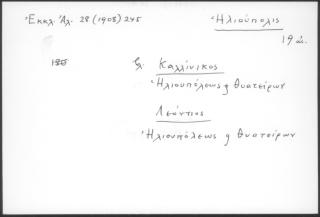 Ἐκκλ. Ἀλ. 28 (1908) 245
Ἡλιούπολις
19 αἰ.
Βλ. Καλλίνικος
Ἡλιουπόλεως & Θυατείρων
Λεόντιος
Ἡλιουπόλεως & Θυατείρων